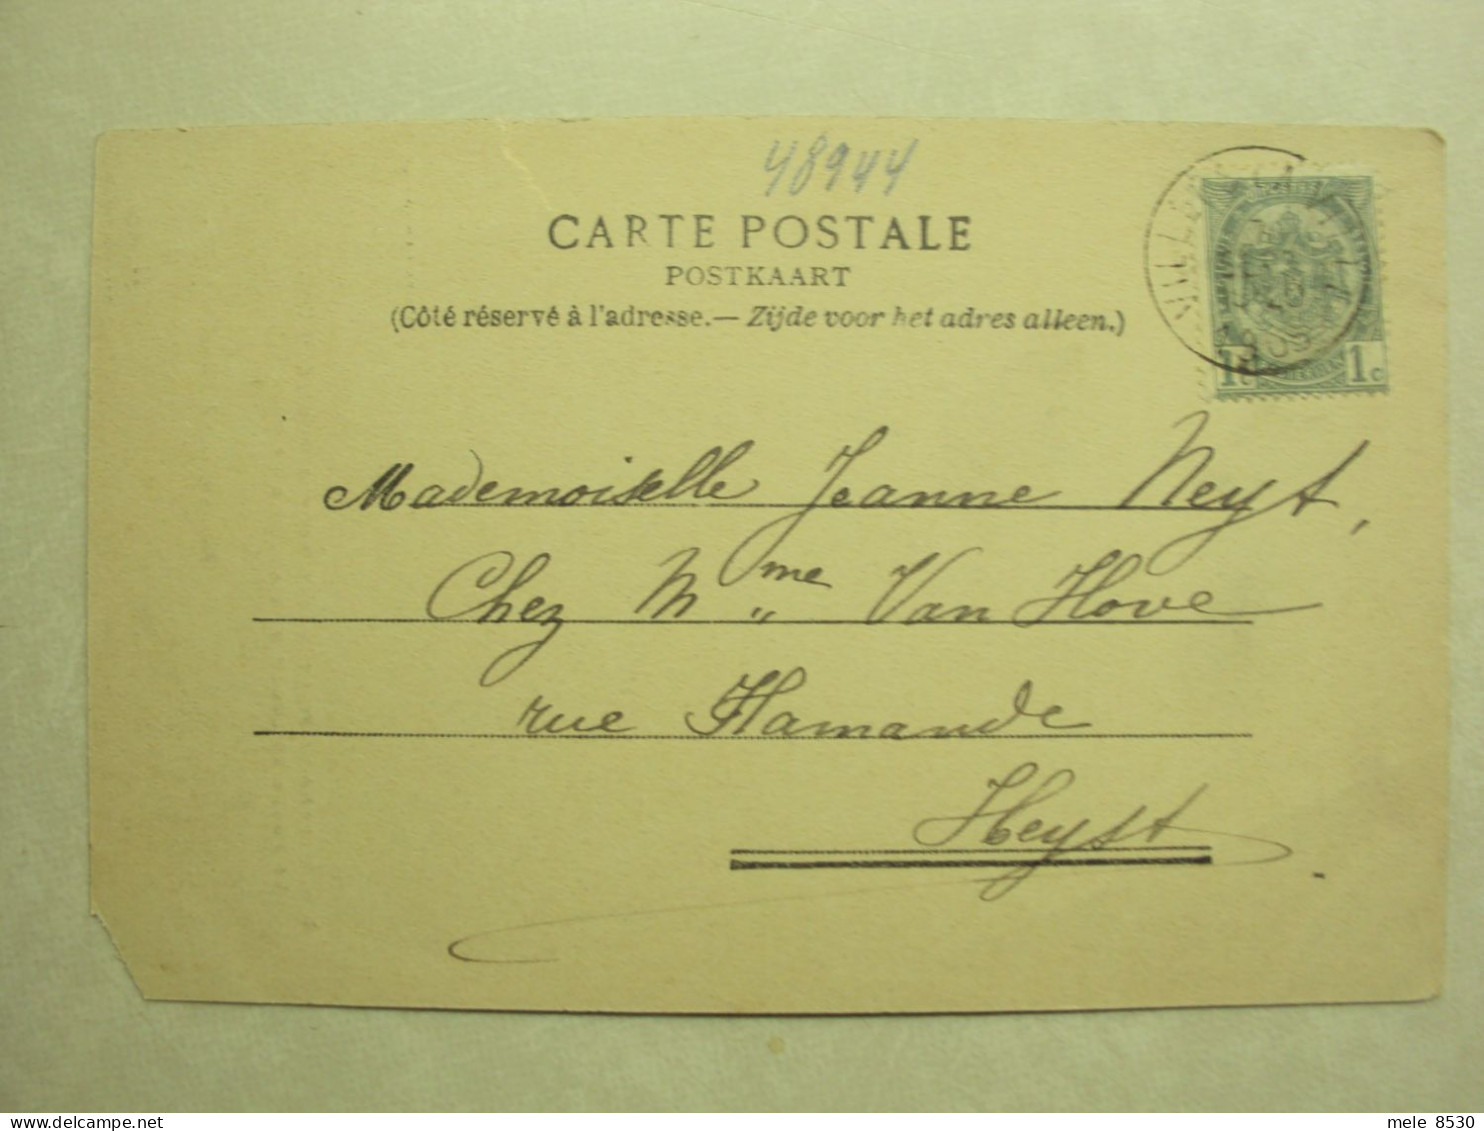 48944
CARTE POSTALE
POSTKAART
(Côté réservé à l'adresse. — Zijde voor het adres alleen.)
1c 1c
Mademoiselle Jeanne Neyt,
Chez Mme Van Hove
rue Flamande
Heyst
mele 8530